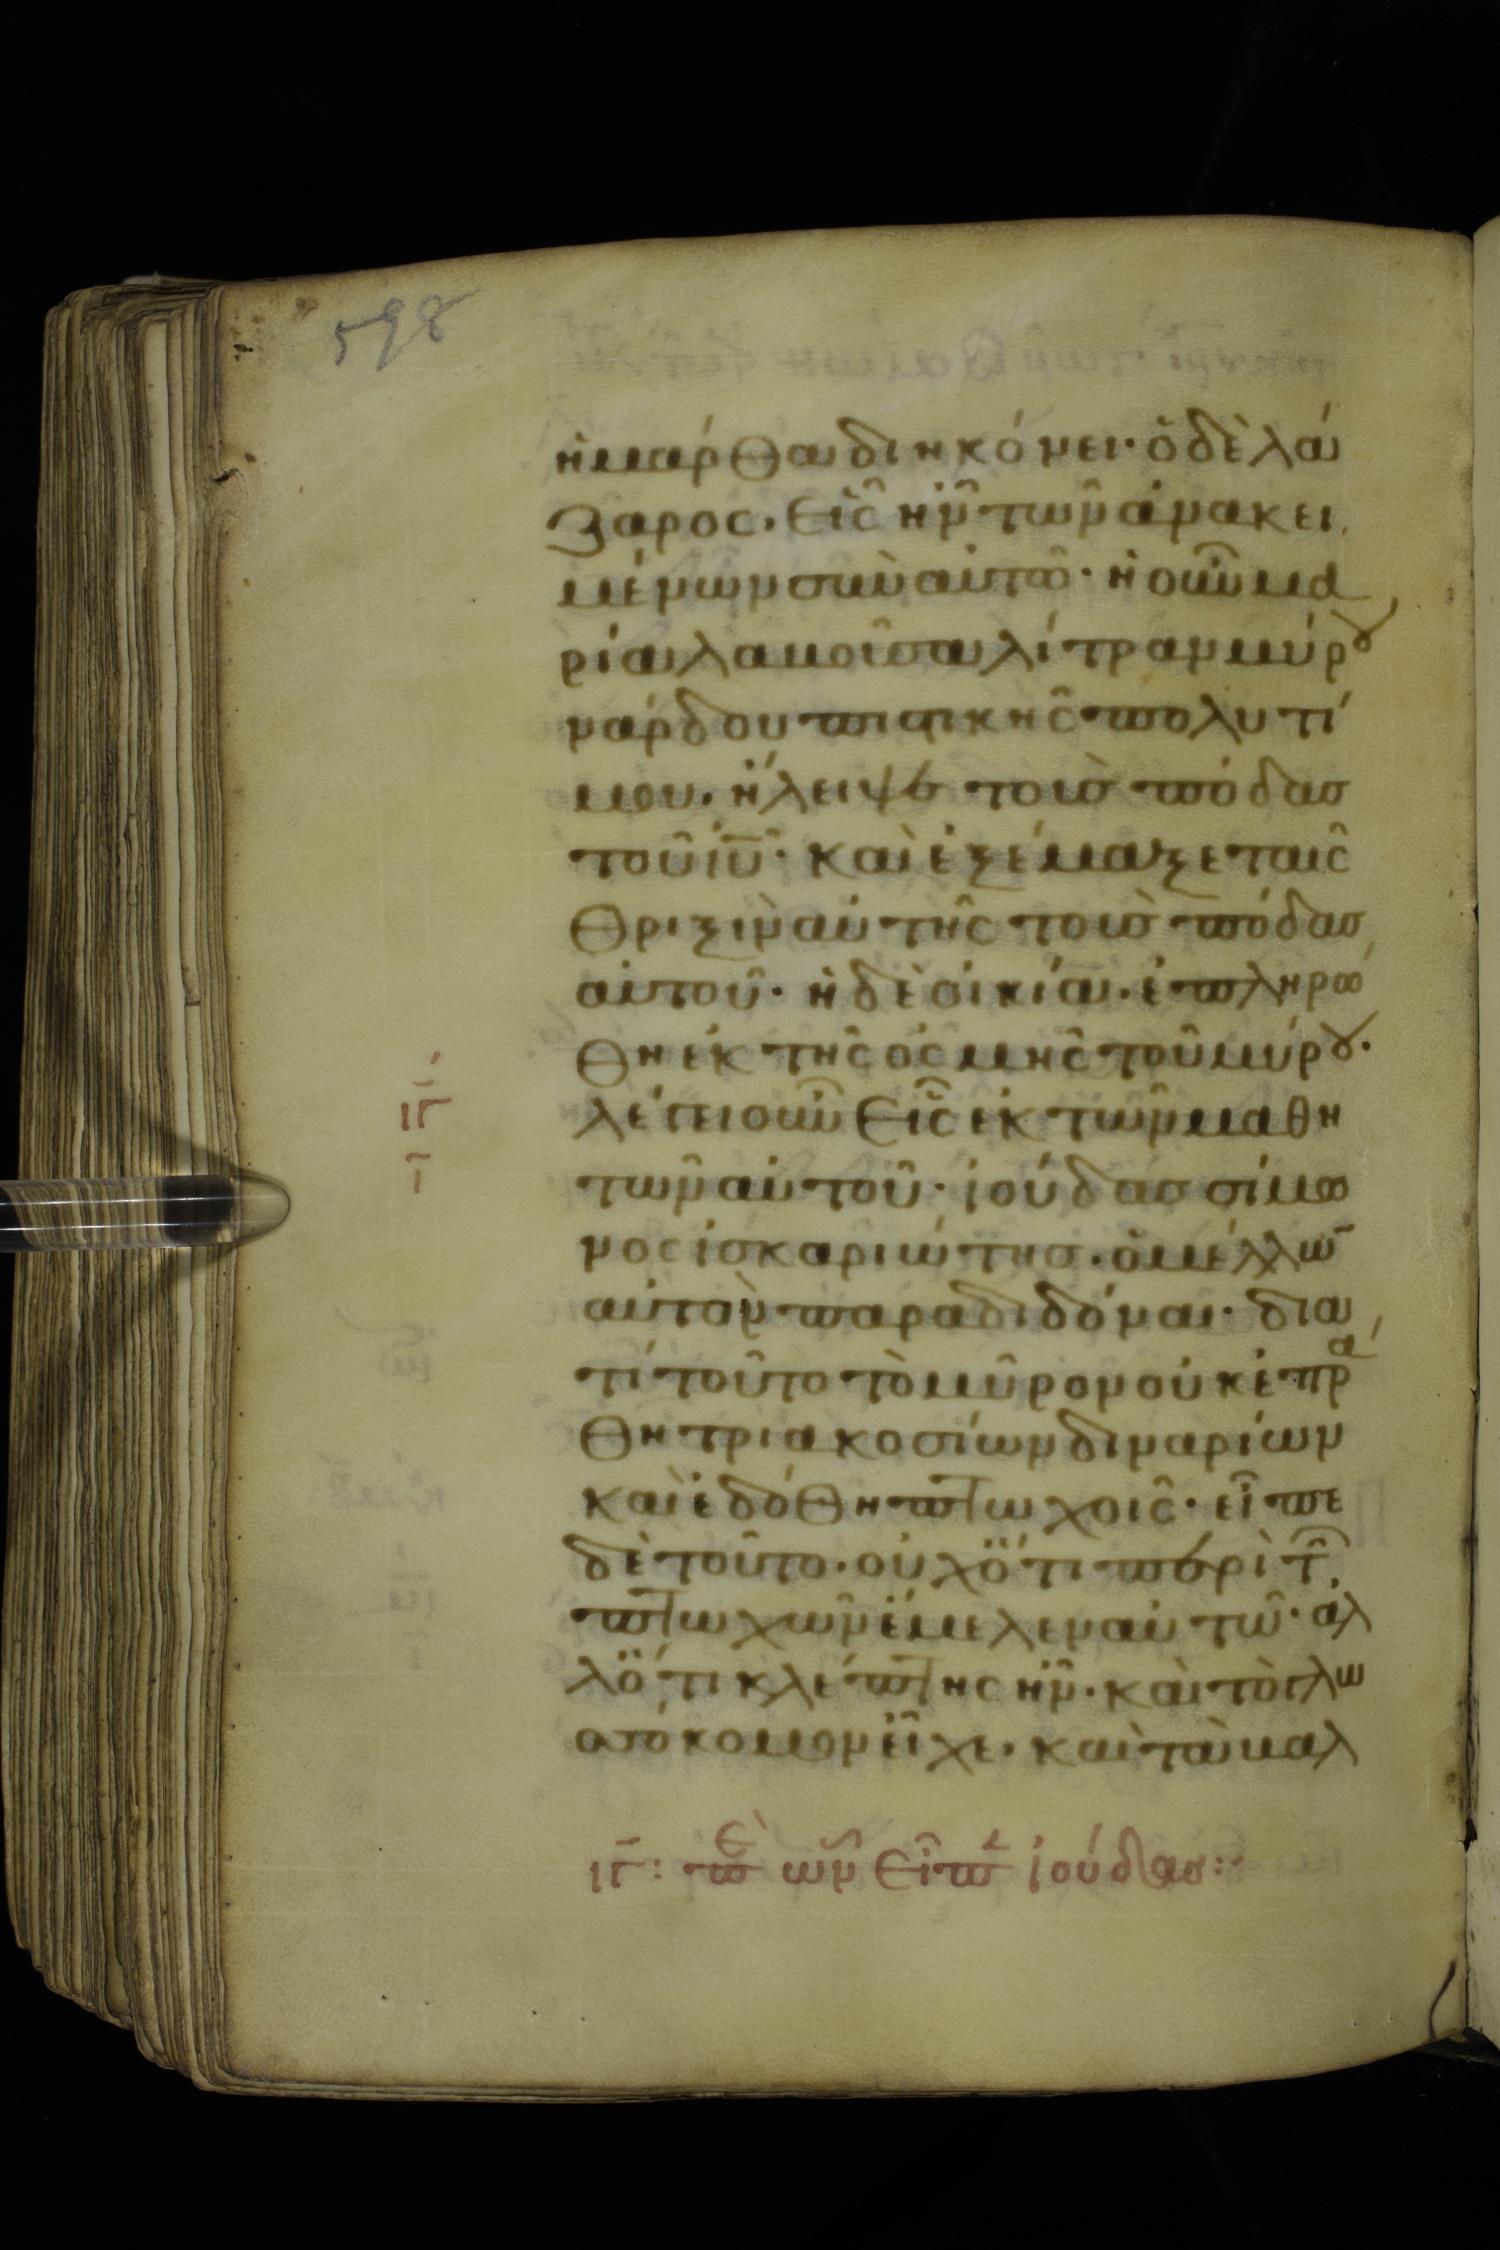 598
ἡ μάρθα διηκόνει· ὁ δὲ λά
ζαρος· εἷς ἦν τῶν ἀνακει
μένων σὺν αὐτῶ· ἡ οὖν μα
ρία λαβοῦσα λίτραν μύρου
νάρδου πιστικῆς πολυτί
μου· ἤλειψε τοὺς πόδας
τοῦ ἰῦ· καὶ ἐξέμαξε ταῖς
θριξὶν αὐτῆς τοὺς πόδας
αὐτοῦ· ἡ δὲ οἰκία· ἐπληρώ
θη ἐκ τῆς ὀσμῆς τοῦ μύρου·
λέγει οὖν εἷς ἐκ τῶν μαθη
τῶν αὐτοῦ· ἰούδας σίμω
νος ἰσκαριώτης· ὁ μέλλω̄
αὐτὸν παραδιδόναι· δια
τί τοῦτο τὸ μῦρον οὐκ ἐπρά
θη τριακοσίων διναρίων
καὶ ἐδόθη πτωχοῖς· εἶπε
δὲ τοῦτο· οὐχ ὅτι περὶ τῶν
πτωχῶν ἔμελεν αὐτῶ· ἀλ
λ ὅτι κλέπτης ἦν· καὶ τὸ γλω
σσόκομον εἶχε· καὶ τὰ βαλ
ιγ
ι
ιγ: πε ὧν εἶπ ἰούδας: